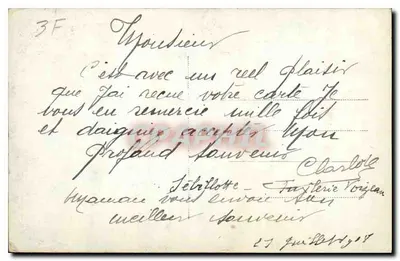 3F
Monsieur
C'est avec un reel plaisir
que j'ai reçue votre carte Je
vous en remercie mille fois
et daignier accepter Mon
profond souvenir
Charlotte
Sébillotte
Maman vous envoie son
meilleur souvenir
21 Juillet 1907